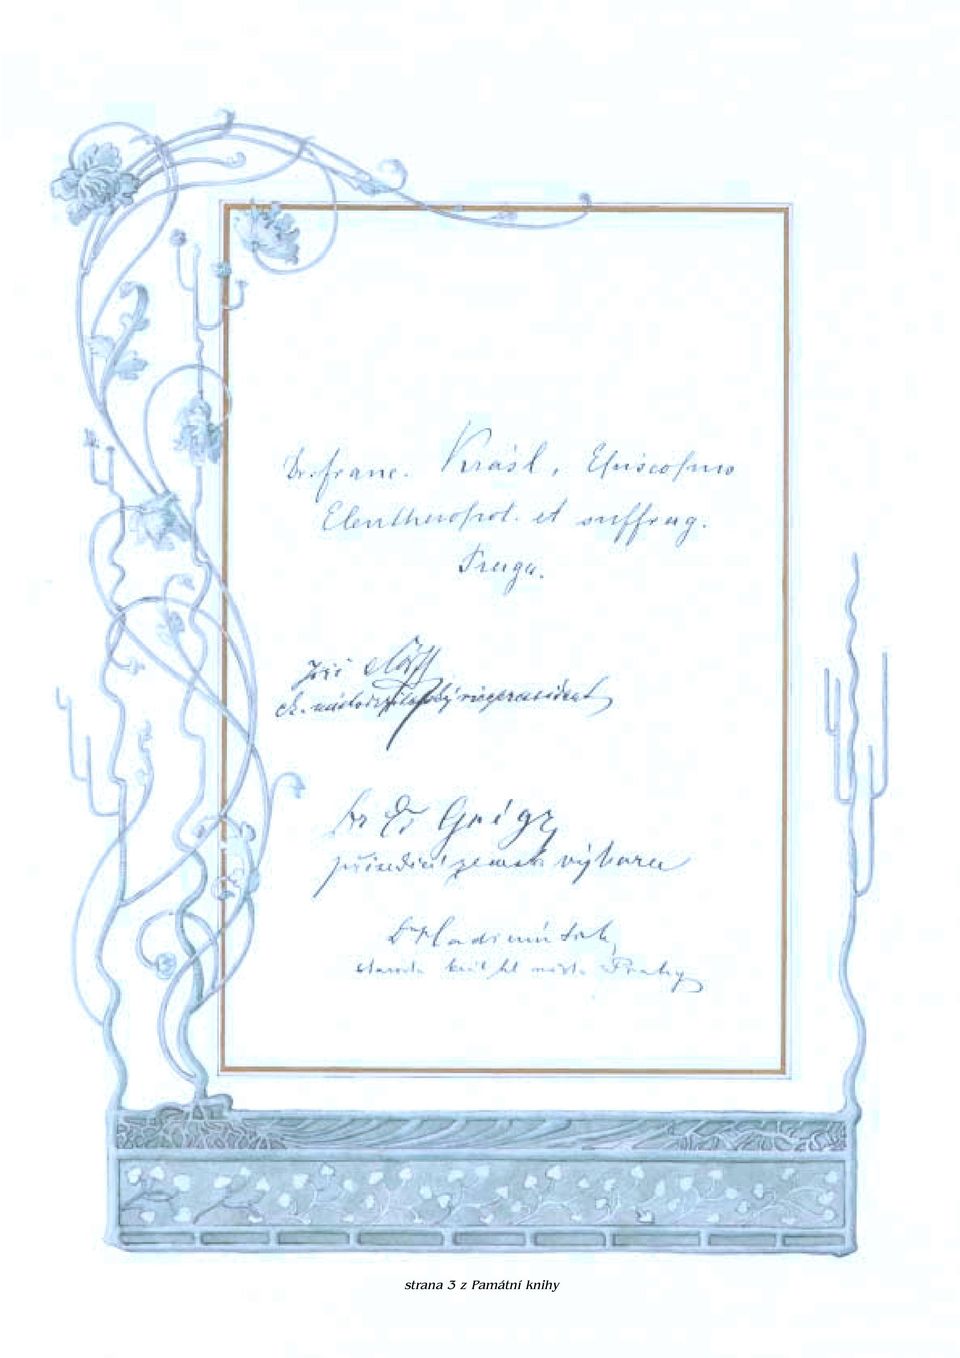 Dr. Franc. Krásl, Episcopus
Eleutheropol. et suffrag.
Praga.
Jiří
c.k. místodržitelský vicepresident
Dr Ed Grégr
přísedící zemsk. výboru
Dr Vladimír Srb,
starosta král. hl. města Prahy
strana 3 z Památní knihy